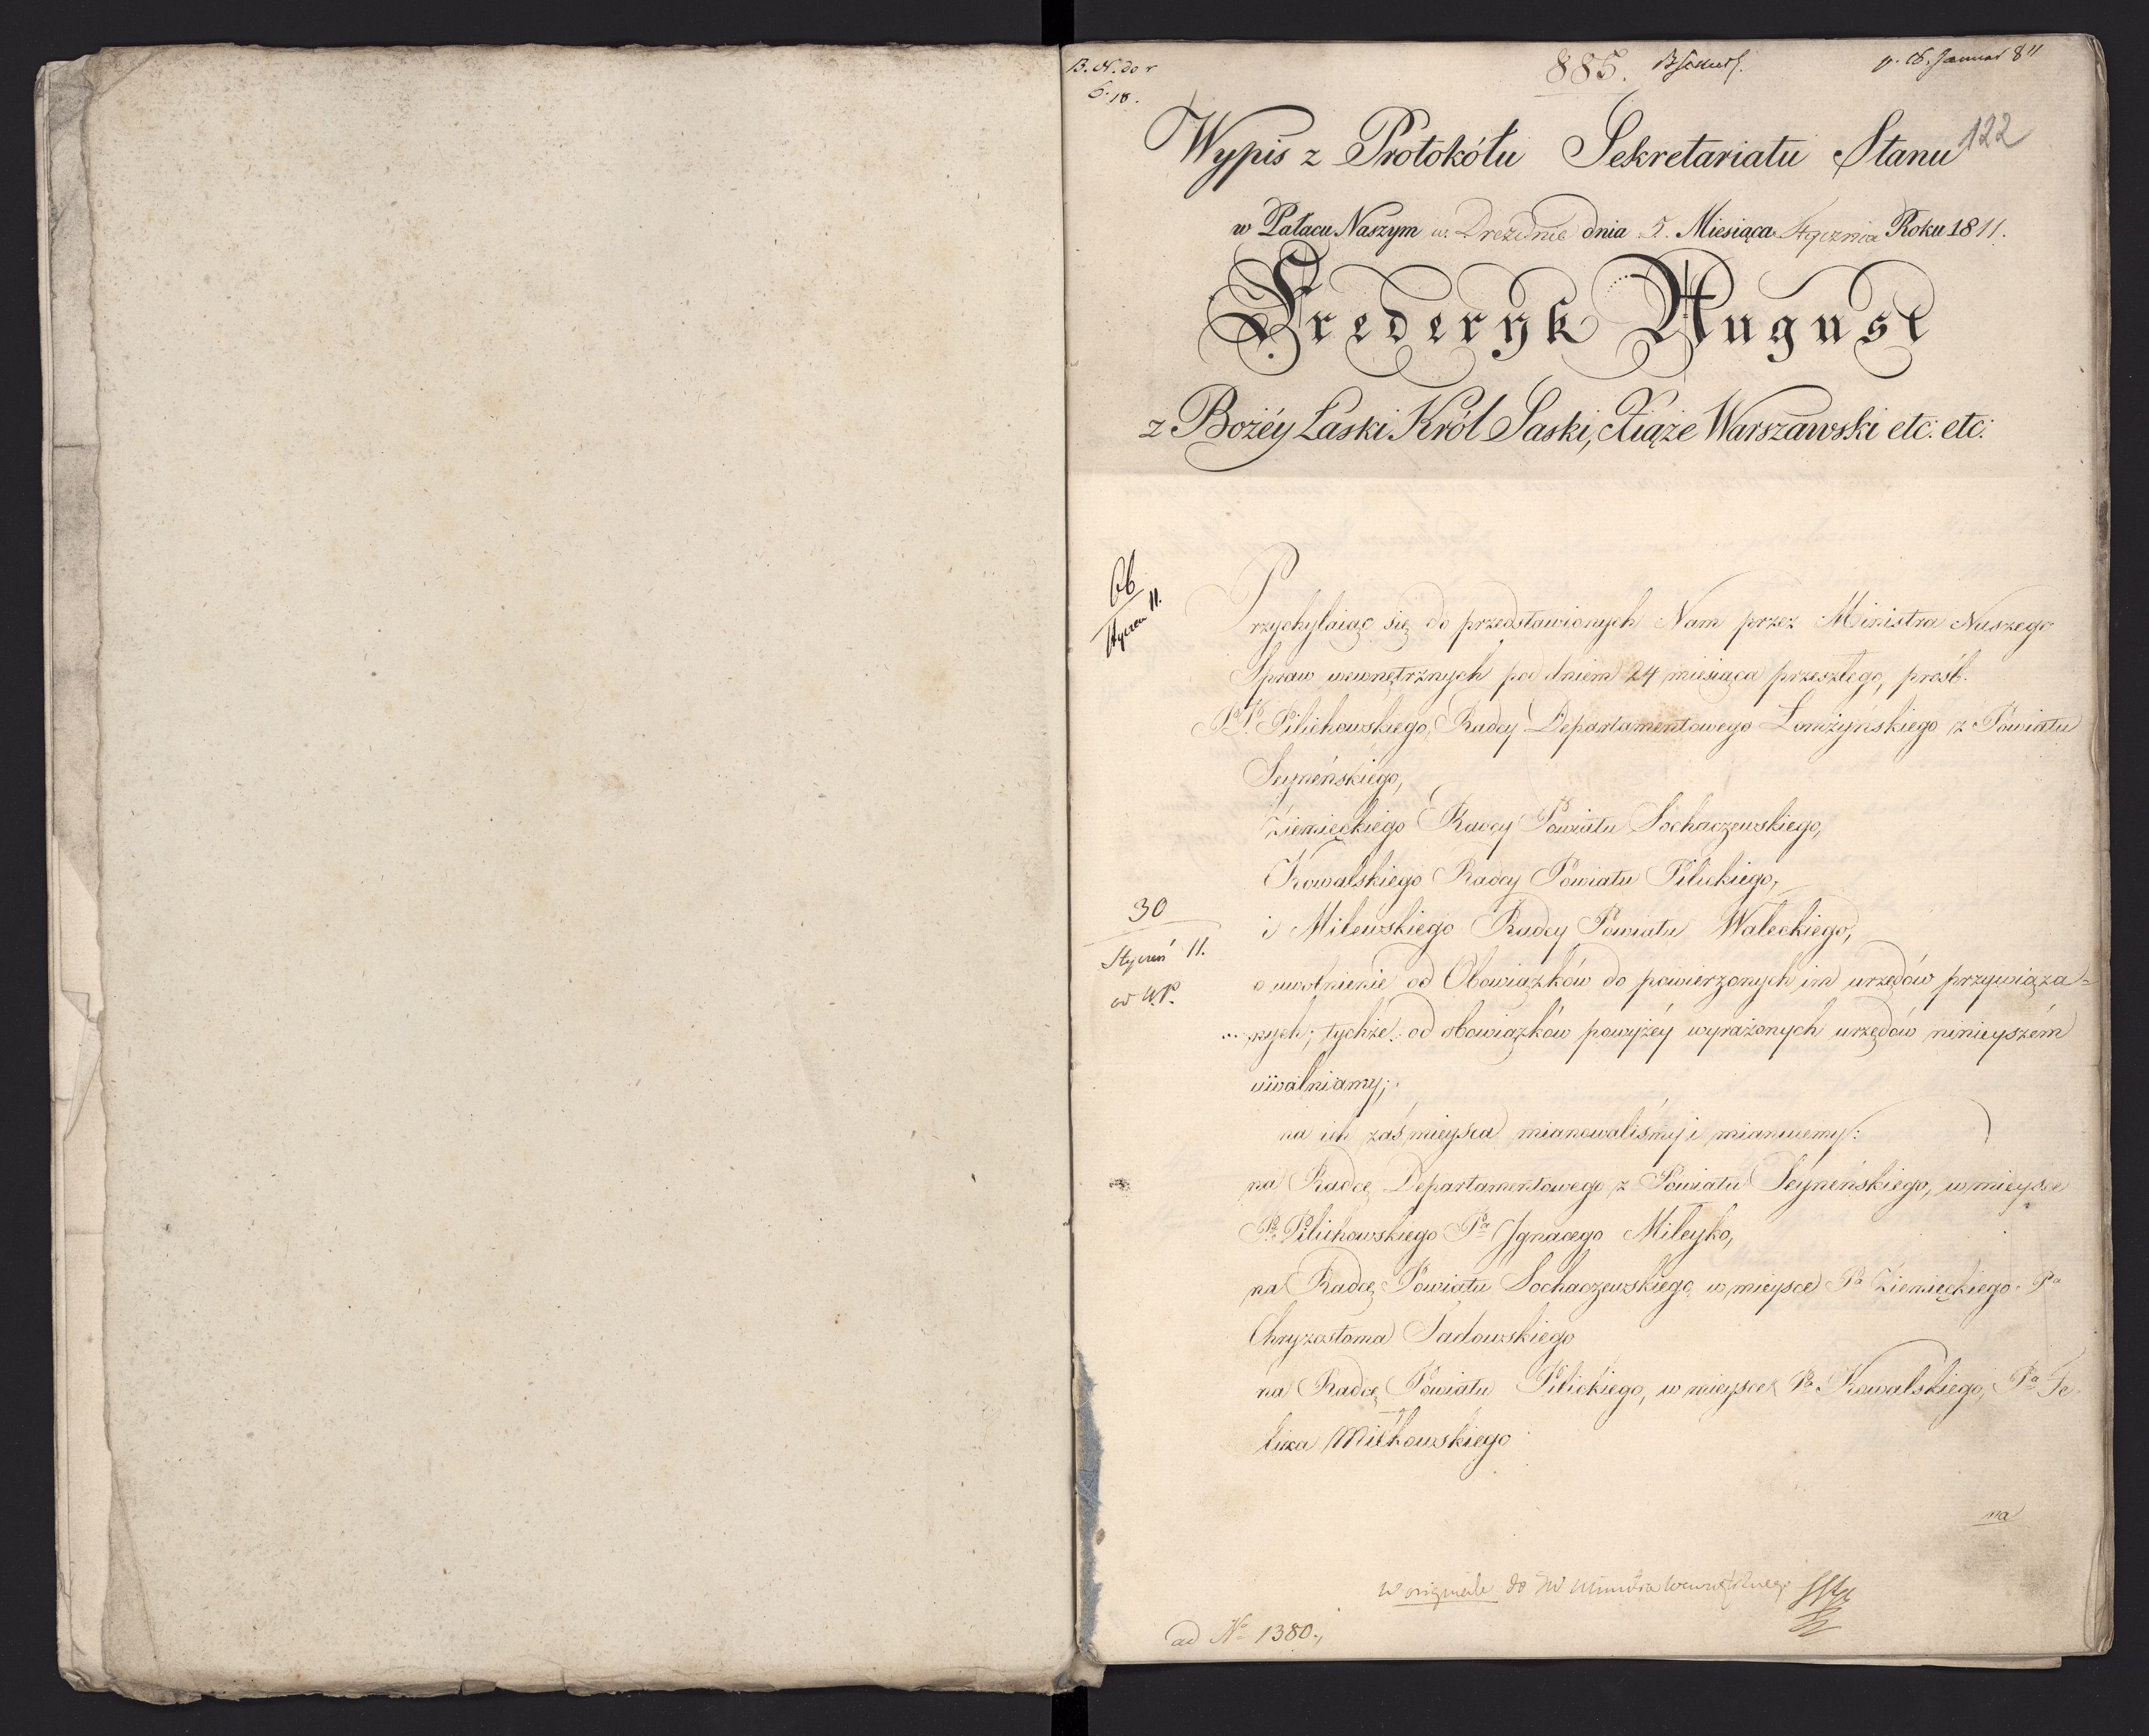 B. N. do r
6. 18.
885.
p. 18. Januar 811
122
Wypis z Protokółu Sekretariatu Stanu
w Pałacu Naszym w Dreźdnie dnia 5. Miesiąca Stycznia Roku 1811.
Frederyk August
z Bożéy Łaski Król Saski, Xiąże Warszawski etc. etc.
66
Styczeń 11.
Przychylaiąc się do przedstawionych Nam przez Ministra Naszego
Spraw wewnętrznych pod dniem 24 miesiąca przeszłego, prośb.
PP. Pilichowskiego, Radcy Departamentowego Łomżyńskiego z Powiatu
Seyneńskiego,
Ziemięckiego Radcy Powiatu Sochaczewskiego,
Kowalskiego Radcy Powiatu Pilickiego,
30
Styczeń 11.
i Milewskiego Radcy Powiatu Wałeckiego,
o uwolnienie od Obowiązków do powierzonych im urzędów przywiąza=
nych; tychże od obowiązków powyżéy wyrażonych urzędów ninieyszém
uwalniamy;
na ich zaś mieysca mianowaliśmy i mianuiemy:
na Radcę Departamentowego z Powiatu Seyneńskiego, w mieysce
Pa Pilichowskiego Pa Ignacego Mileyko,
na Radcę Powiatu Sochaczewskiego w mieysce Pa Ziemięckiego Pa
Chryzostoma Sadowskiego
na Radcę Powiatu Pilickiego, w mieysce Pa Kowalskiego, Pa Fe
lixa Miłkowskiego
na
w originale do JW Ministra wewnętrznego
ad No 1380.